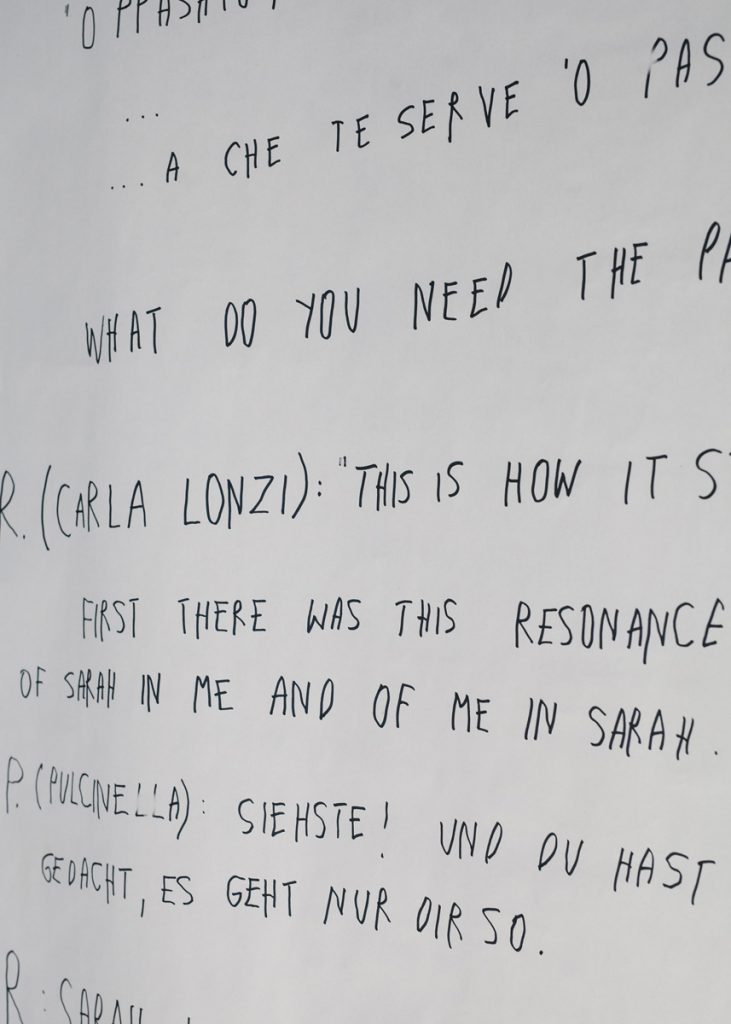 ...
... A CHE TE SERVE 'O
WHAT DO YOU NEED THE
R. (CARLA LONZI): "THIS IS HOW IT
FIRST THERE WAS THIS RESONANCE
OF SARAH IN ME AND OF ME IN SARAH.
P. (PULCINELLA): SIEHSTE! UND DU HAST
GEDACHT, ES GEHT NUR DIR SO.
R: SARAH